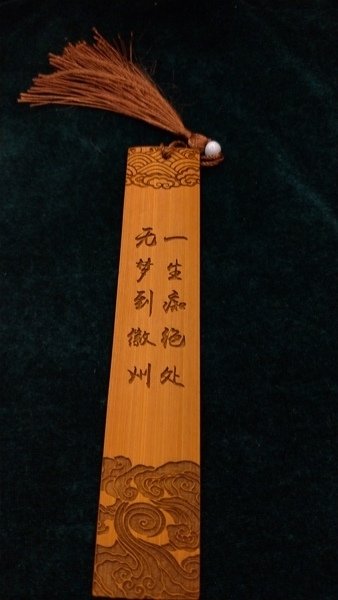 一生痴绝处
无梦到徽州